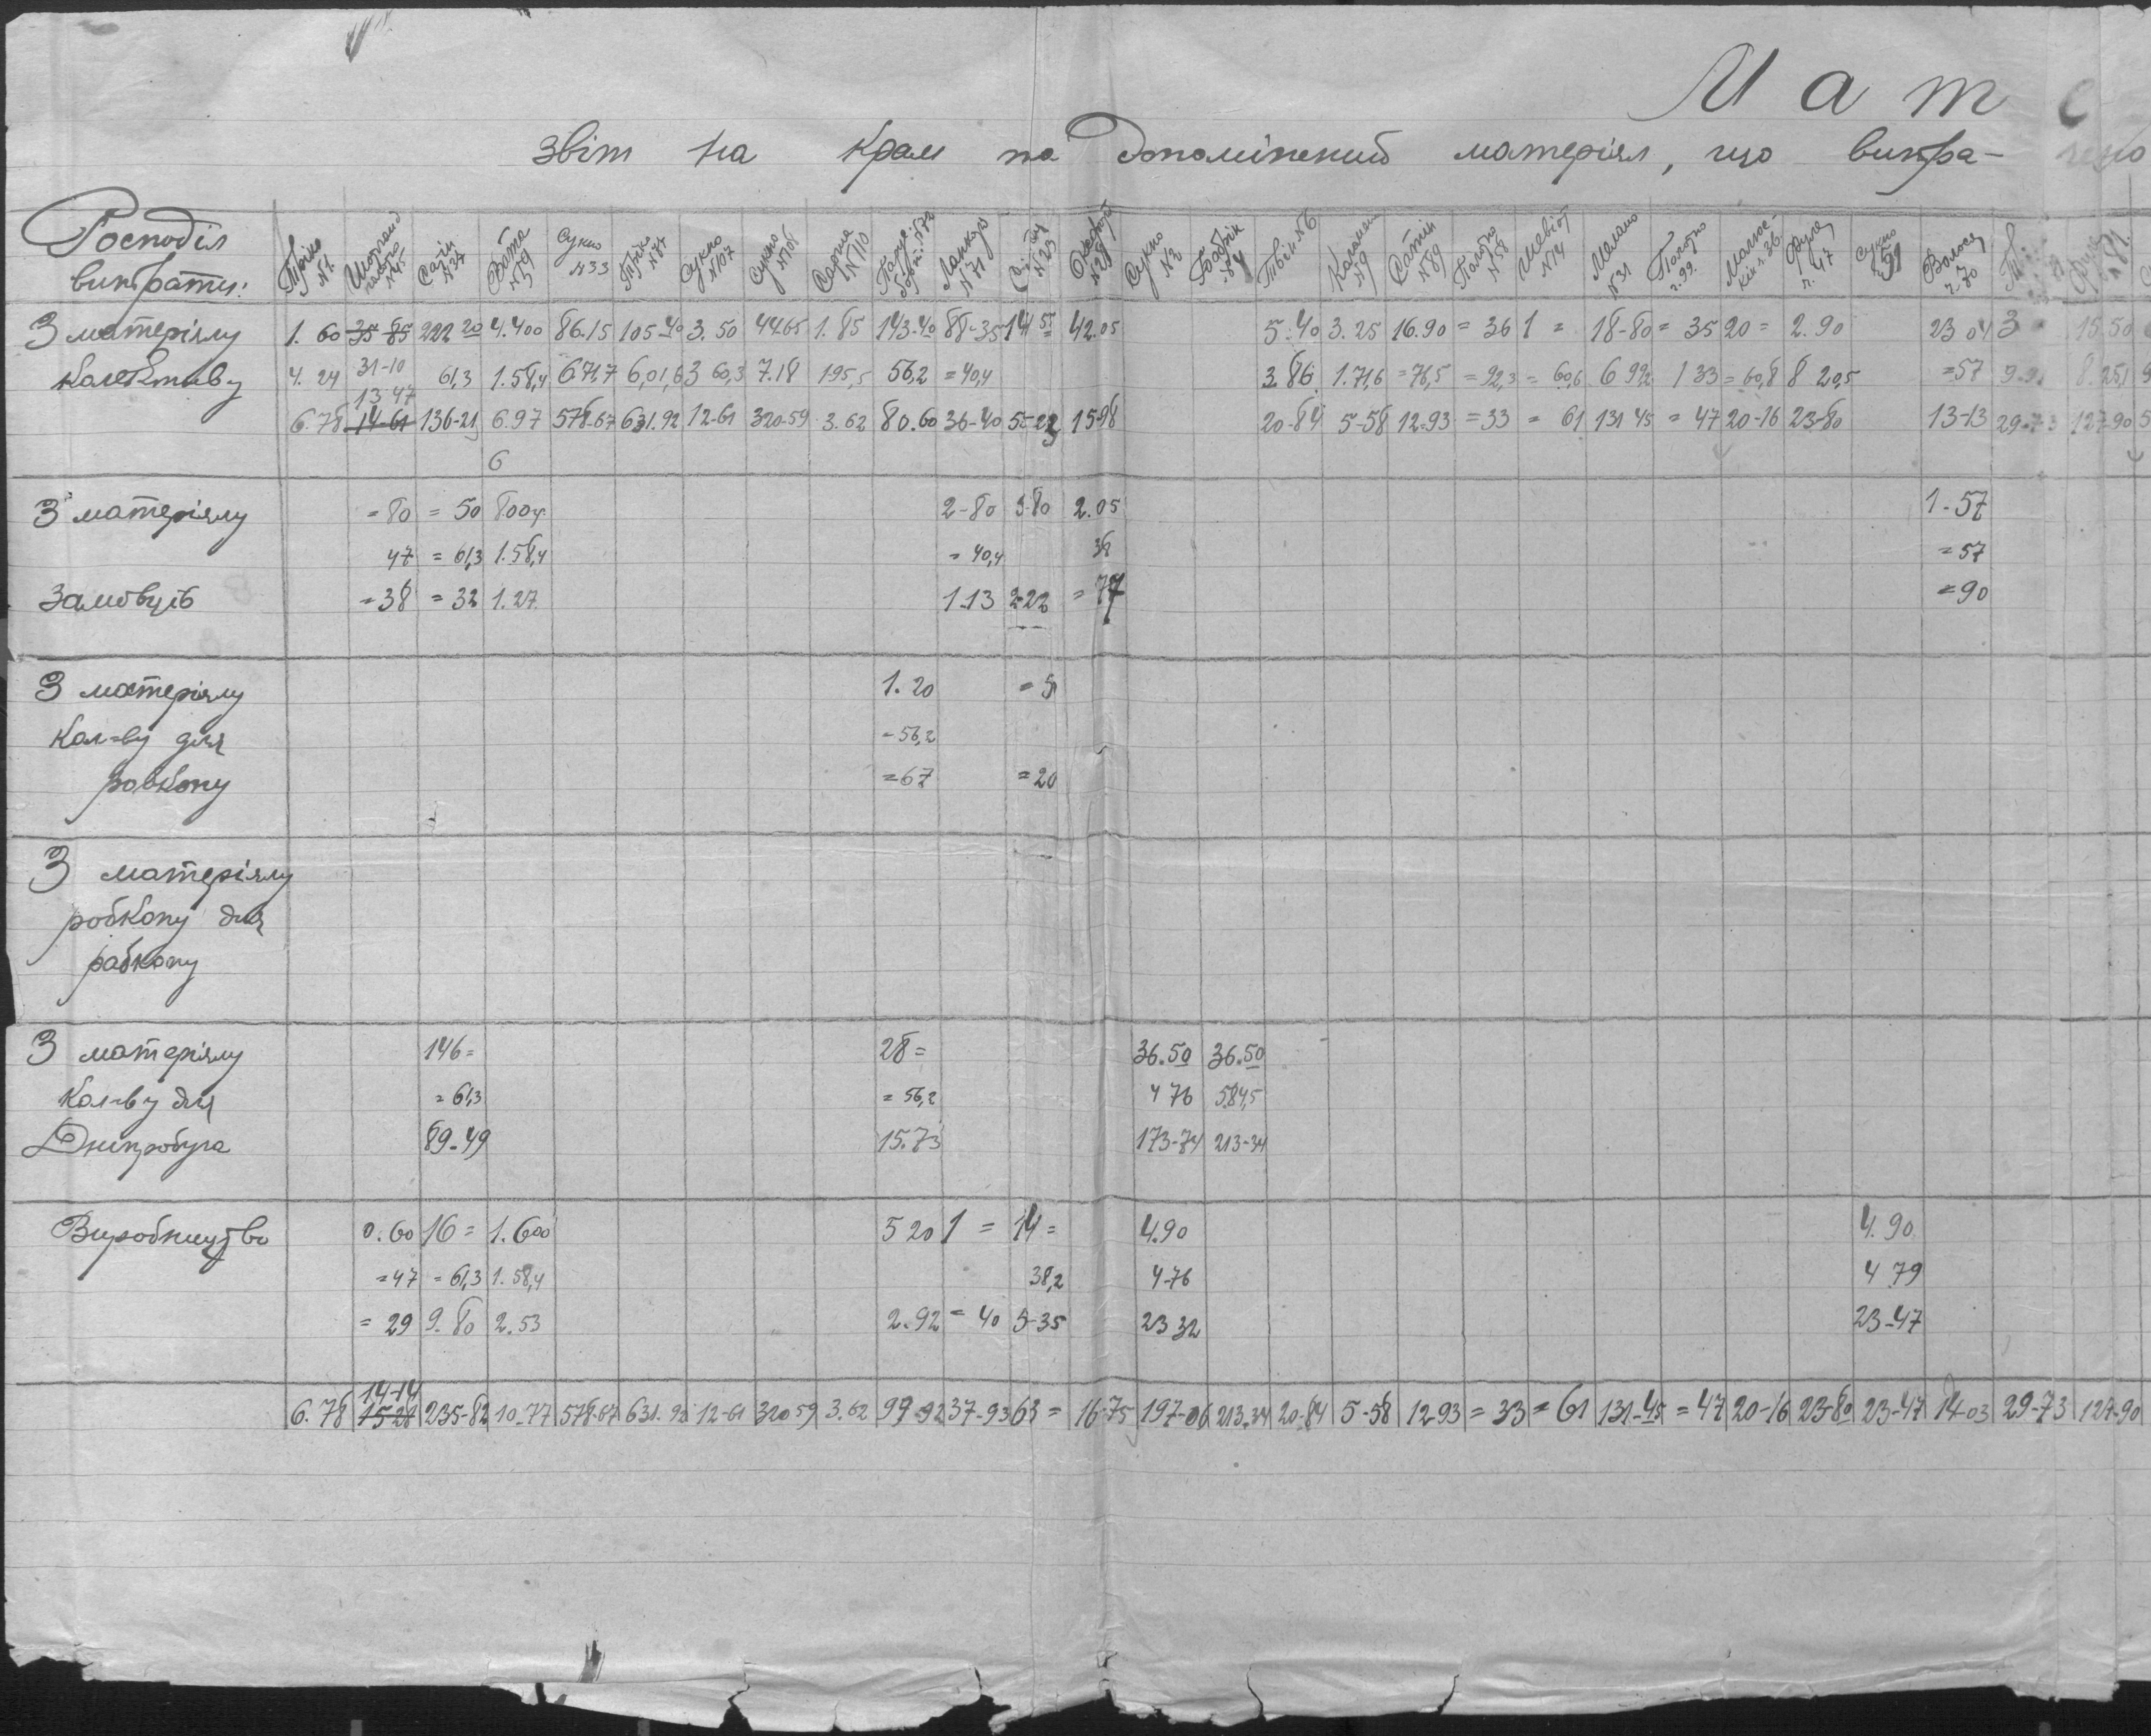 Мат
звіт на крам та допоміжний матеріял, що витра-
Росподіл витрати:
Тріко №1. №45 Сатін №37 Вата №59 Сукно №33 Тріко №87 Сукно №107 Сукно №106 №110 №71 №23 Сукно №2 Бобрік №84 Твін №6 №9 Сатін №89 Полотно №58 Шевіот №14 №31 Полотно ч.99. ч.47 Сукно 59 Волося ч.70
З матеріялу 1.60 35 85 222 20 4.400 86.15 105-40 3.50 44.65 1.85 143-40 88-35 141 55 42.05 5.40 3.25 16.90 =36 1= 18-80 =35 20= 2.90 23 04 3 15.50
колективу 4.24 31-10 61,3 1.58,4 6.71,7 6,01,6 3 60,3 7.18 195,5 56,2 =40,4 3.86 1.71,6 =76,5 =92,3 =60,6 6 99,2 1 33 =60,8 8 20,5 =57 8.25,1
13 47
6.78 14-61 136-21 6.97 578-67 631.92 12-61 320-59 3.62 80.60 36-40 55-23 15-98 20-84 5-58 12-93 =33 =61 131 45 =47 20-16 23-80 13-13 29-73 127-90
6
З матеріялу =80 =50 800г 2-80 5-80 2.05 1-57
47 =61,3 1.58,4 =40,4 38 =57
Замовців =38 =32 1.27 1.13 2-22 =77 =90
З матеріялу 1.20 =51
Кол-ву для =56,2
робкопу =67 =20
З матеріялу
робкопу для
рабкопу
З матеріялу 146= 28= 36.50 36.50
Кол-ву для =61,3 =56,2 4 76 5.84,5
Дніпробуга 89-49 15.73 173-74 213-34
Виробництво 0.60 16= 1.600 5 20 1= 14= 4.90 4.90
=47 =61,3 1.58,4 38,2 4-76 4 79
=29 9.80 2.53 2.92 =40 5-35 23 32 23-47
14-14
6.78 15-28 235-82 10-77 578-67 631-92 12-61 320 59 3.62 99-92 37-93 63= 16-75 197-06 213-34 20-84 5-58 12-93 =33 =61 131-45 =47 20-16 23-80 23-47 14-03 29-73 127-90